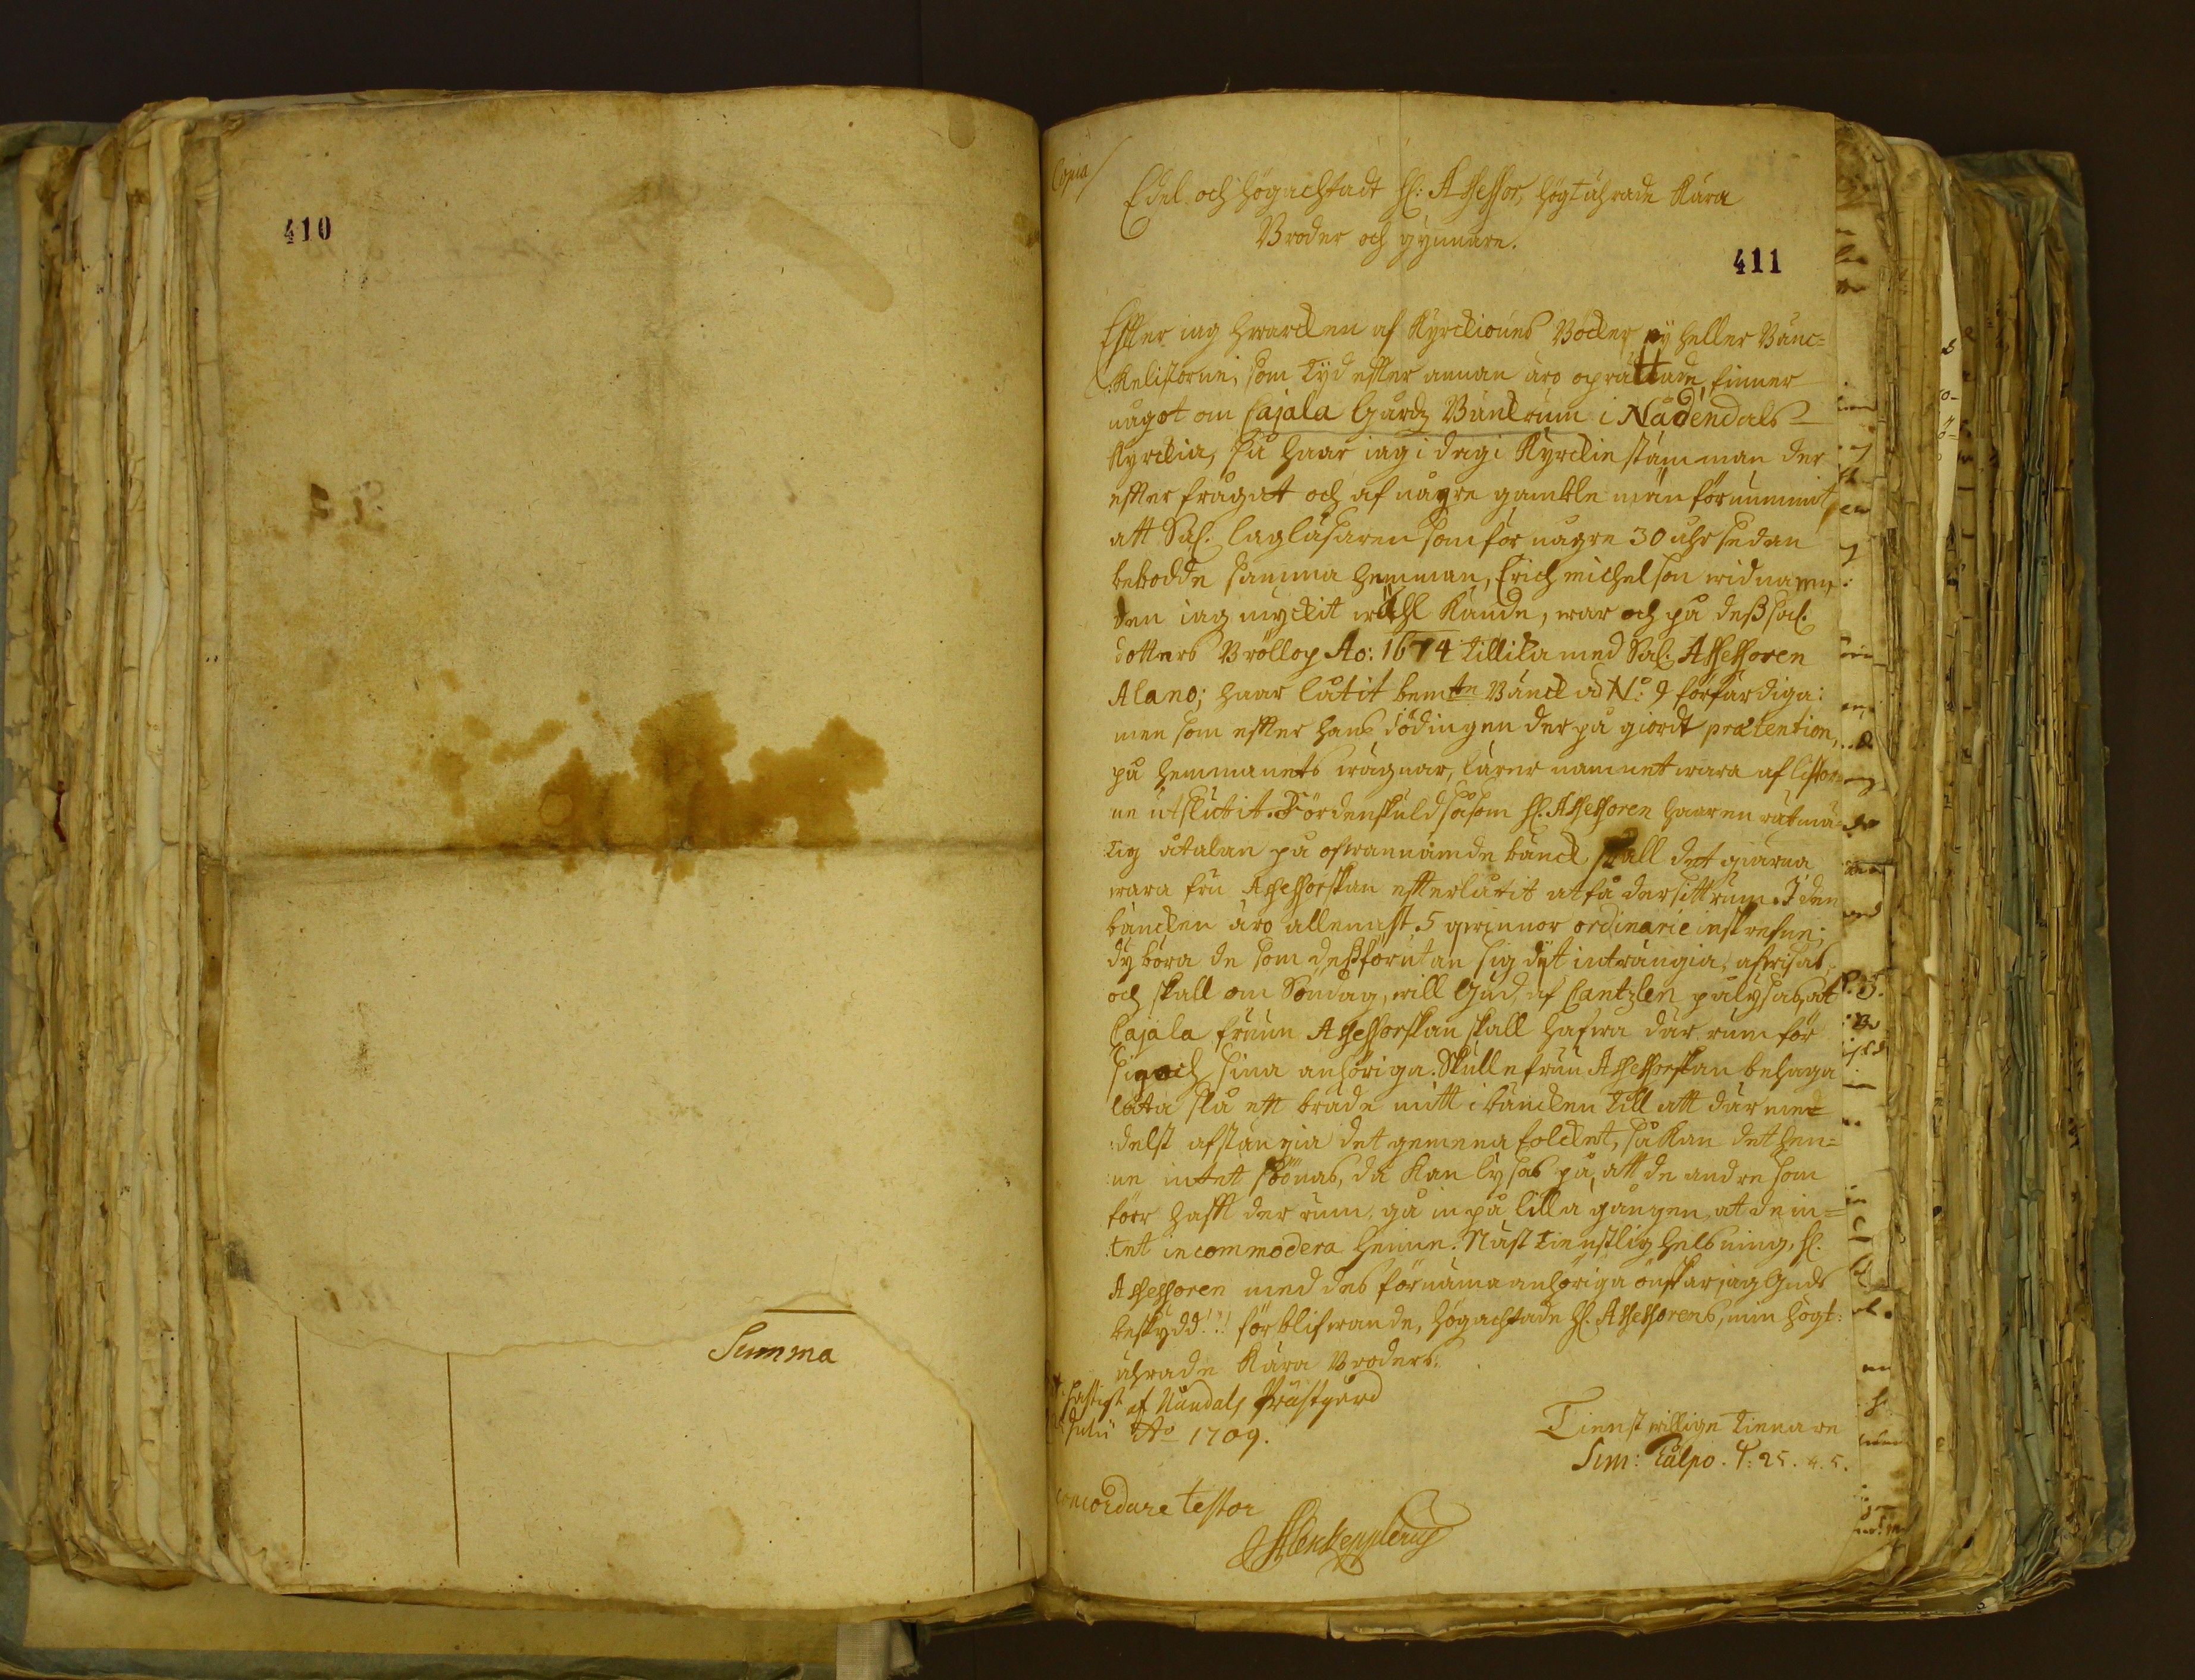 410
Summa
Copia
Edel och Högachtadt H: Assessor, högtährade Kära
Broder och gynnare.
411
Effter iag hwarcken af Kyrckiones Böcker ey heller Bänc=
kelistorne, som tijd efter annan äro oprättade, finner
något om Cajala Gårdz Bänckrum i Nådendals
Kyrckia, så haar iag i dag i Kyrckie stämman der
effter frågat och af någre gamble män förnummit
att Sal. lagläsaren som för någre 30 åhr sedan
bebodde samma hemman, Erich michelson widnamn,
den iag myckit wähl kände, war och på dess sal.
dotters Bröllop Ao: 1674 tillika med Sal. Assessoren
Alano; haar låtit bemte Bänck ad No: 9 förfärdiga:
men som effter hans död ingen der på giordt prætention,
på hemmanets wägnar, lärer namnet wara af listor=
ne utslutit. Fördenskuld såsom H. Assessoren haar en rätmä=
tig åtalan på ofwannämde bänck skall det giärna
wara fru Assessorskan effterlåtit at få der sittrum. I den
bäncken äro allenast 5 qwinnor ordinarie inskrefne;
dy böra de som dessförutan sig dijt inträngia, afwisas,
och skall om Söndag, will Gud, af Cantzlen pålysas, at
Cajala fruun Assessorskan skall hafwa där rum för
sig och sina anhöriga. Skulle fruu Assessorskan behaga
låta slå ett bräde mitt i bäncken till att där med=
delst afstängia det gemena folcket, så kan det hen=
ne intet förmenas, då kan lysas på, att de andre som
förr hafft der rum, gå in på lilla gången, at de in=
tet incommodera henne. Näst tienstlig helsning, H.
Assessoren med des förnäma anhöriga önskar iag Guds
beskydd!!! förblifwande, högachtade H. Assessorens, min högt:
ährade Kära Broders.
hastigt af Nåndals Prästgård
Julii Ao 1709.
Tienstwillige tienare
Sim: Pålpo. T: 25. 4. 5.
concordare testor